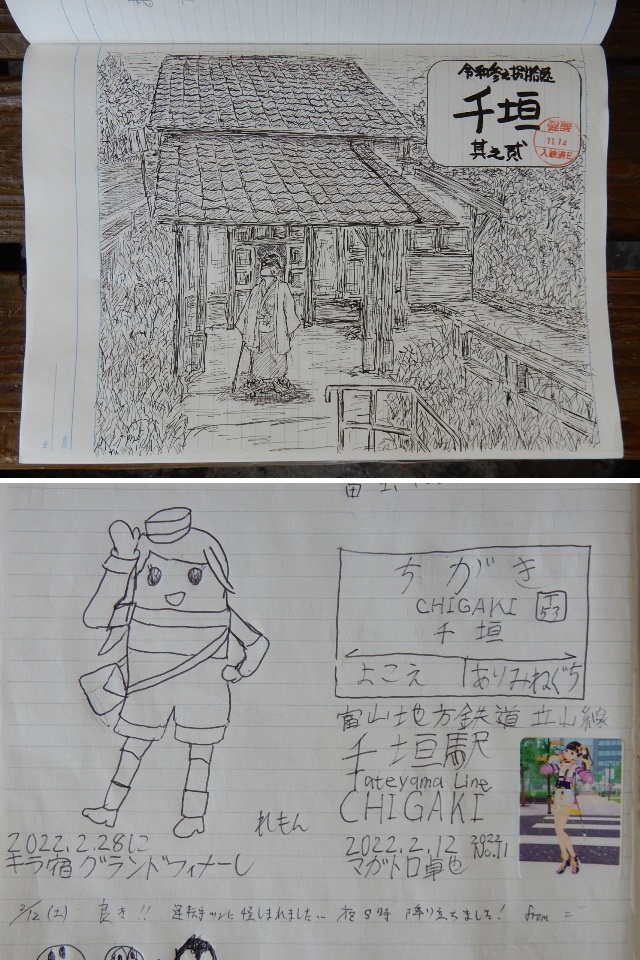 千垣
其之貳
11.14
ちがき
CHIGAKI
T
53
千垣
よこえ
ありみねぐち
富山地方鉄道 立山線
千垣駅
Tateyama Line
CHIGAKI
2022.2.12
2022
No.11
マガトロ卓也
れもん
2022.2.28に
キラ宿グランドフィナーレ
2/12(土) 良き!! 運転手さんに怪しまれました… 夜8時 降り立ちました! from =